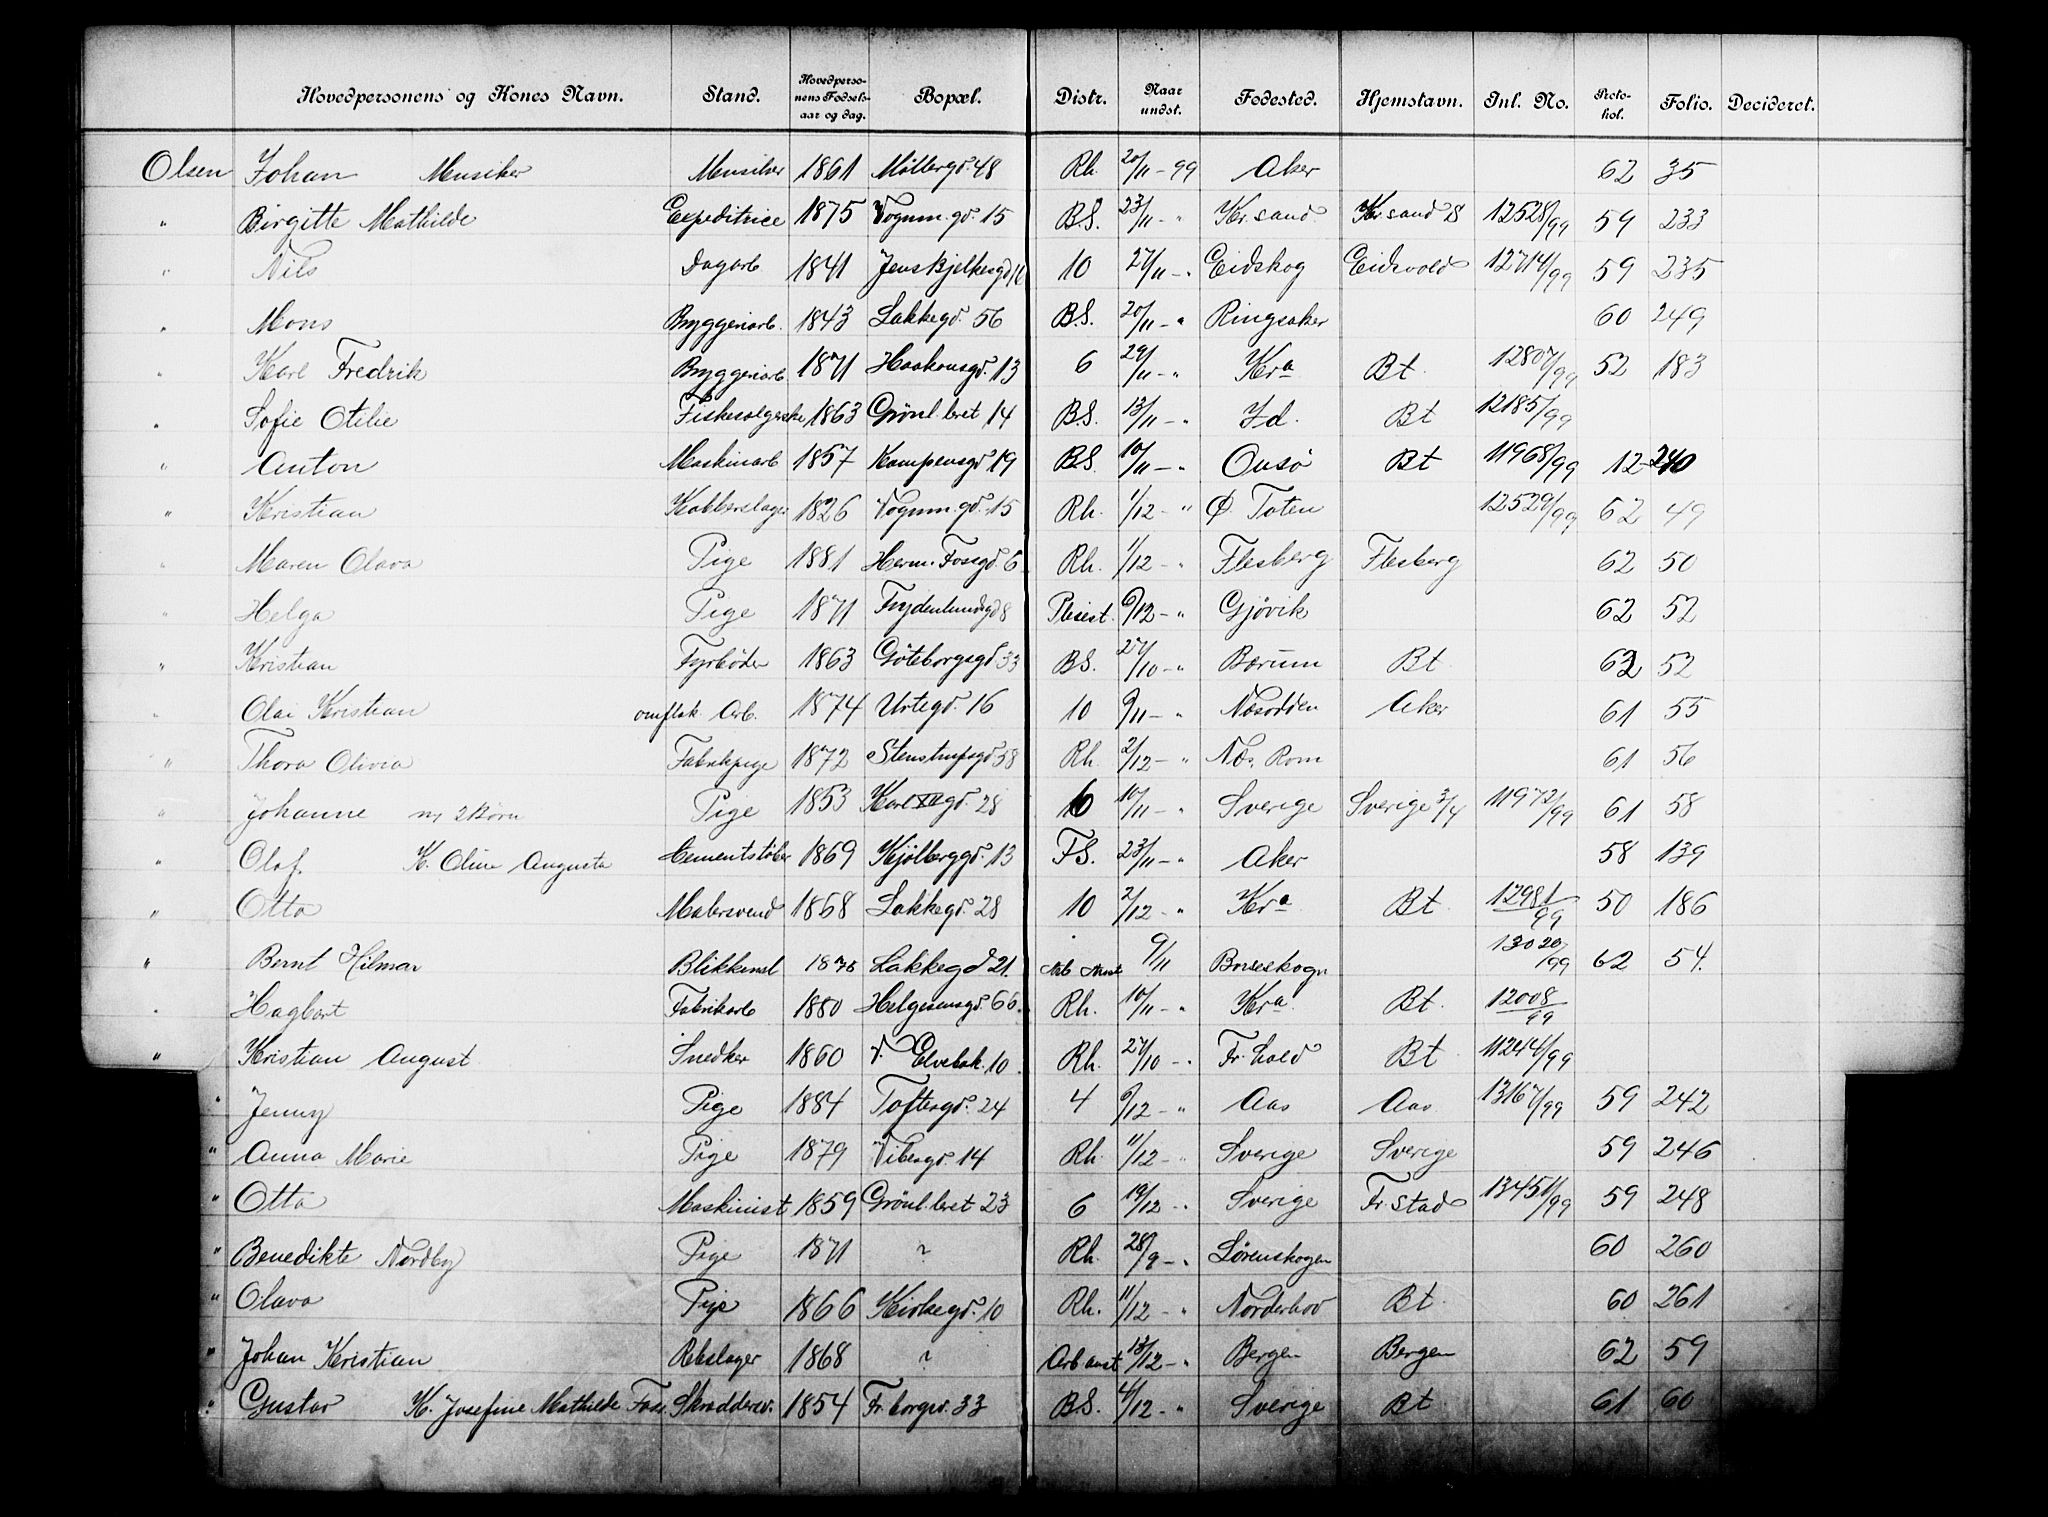 Hovedpersonens og Kones Navn. Stand. Hovedpersonens Fødselsaar og dag. Bopæl. Distr. Naar undst. Fødested. Hjemstavn. Inl. No. Protokol. Folio. Decideret.
Olsen Johan Musiker Musiker 1861 Møllergd. 48 Rh. 20/11 - 99 Aker 62 35
" Birgitte Mathilde Expeditrice 1875 Vognm. gd. 15 B.S. 23/11 - " Kr. sand. Kr. sand S 12528/99 59 233
" Nils Dagarb 1841 Jens Bjelkesgd 10 27/11 - " Eidskog Eidsvold 12714/99 59 235
" Mons Bryggeriarb. 1843 Lakkegd. 56 B.S. 20/11 - " Ringsaker 60 249
" Karl Fredrik Bryggeriarb 1871 Haakonsgd. 13 6 29/11 - " Kra Bt. 12807/99 52 183
" Sofie Otilie Fiskesælgerske 1863 Grønl. leret 14 B.S. 13/11 - " Id. Bt 12185/99
" Anton Maskinarb 1857 Kampensgd 19 B.S. 10/11 - " Onsø Bt 11968/99 12 240
" Kristian Kobberslager 1826 Vognm. gd. 15 Rh. 1/12 - " Ø. Toten 12529/99 62 49
" Maren Olava Pige 1881 Herm. Fossgd. 6 Rh. 1/12 - " Flesberg Flesberg 62 50
" Helga Pige 1871 Frydenlundgd 8 Plejest. 6/12 - " Gjøvik 62 52
" Kristian Fyrbøder 1863 Göteborgsgd. 33 B.S. 27/10 - " Bærum Bt. 62 52
" Olai Kristian omflak. Arb. 1874 Urtegd. 16 10 9/11 - " Næsodden Aker 61 55
" Thora Olivia Fabrikpige 1872 Stenstrupsgd 58 Rh. 2/12 - " Næs. Rom 61 56
" Johanne m/ 2 Børn Pige 1853 Karl XII gd. 28 6 10/11 - " Sverige Sverige 3/4 11972/99 61 58
" Olaf. K. Oline Augusta Cementstøber 1869 Kjølberggd. 13 F.S. 23/11 - " Aker 58 139
" Otto Malersvend 1868 Lakkegd. 28 10 2/12 - " Kra Bt. 12981/99 50 186
" Bernt Hilmar Blikkensl 1875 Lakkegd 21. 9/11 13020/99 62 54.
" Hagbart Fabrikarb 1880 Helgesensgd. 66. Rh. 10/11 - " Kra. Bt. 12008/99
" Kristian August Snedker 1860 V. Elvebak. 10. Rh. 27/10 - " Fr. hald Bt 11244/99
" Jenny Pige 1884 Toftesgd. 24 4 9/12 - " Aas Aas 13167/99 59 242
" Anna Marie Pige 1879 Vibesgd. 14 Rh. 11/12 - " Sverige Sverige 59 246
" Otto Maskinist 1859 Grønl. leret 23 6 19/12 - " Sverige Fr. stad 13451/99 59 248
" Benedikte Nordby Pige 1871 ? Rh. 28/9 - " Lørenskogen 60 260
" Olava Pige 1866 Kirkegd. 10 Rh. 11/12 - " Norderhov Bt. 60 261
" Johan Kristian Rebslager 1868 ? Arb anst 13/12 - " Bergen Bergen 62 59
" Gustav K. Josefine Mathilde Foss. Skræddersv. 1854 Fr. borgv. 33 B.S. 4/12 - " Sverige Bt. 61 60